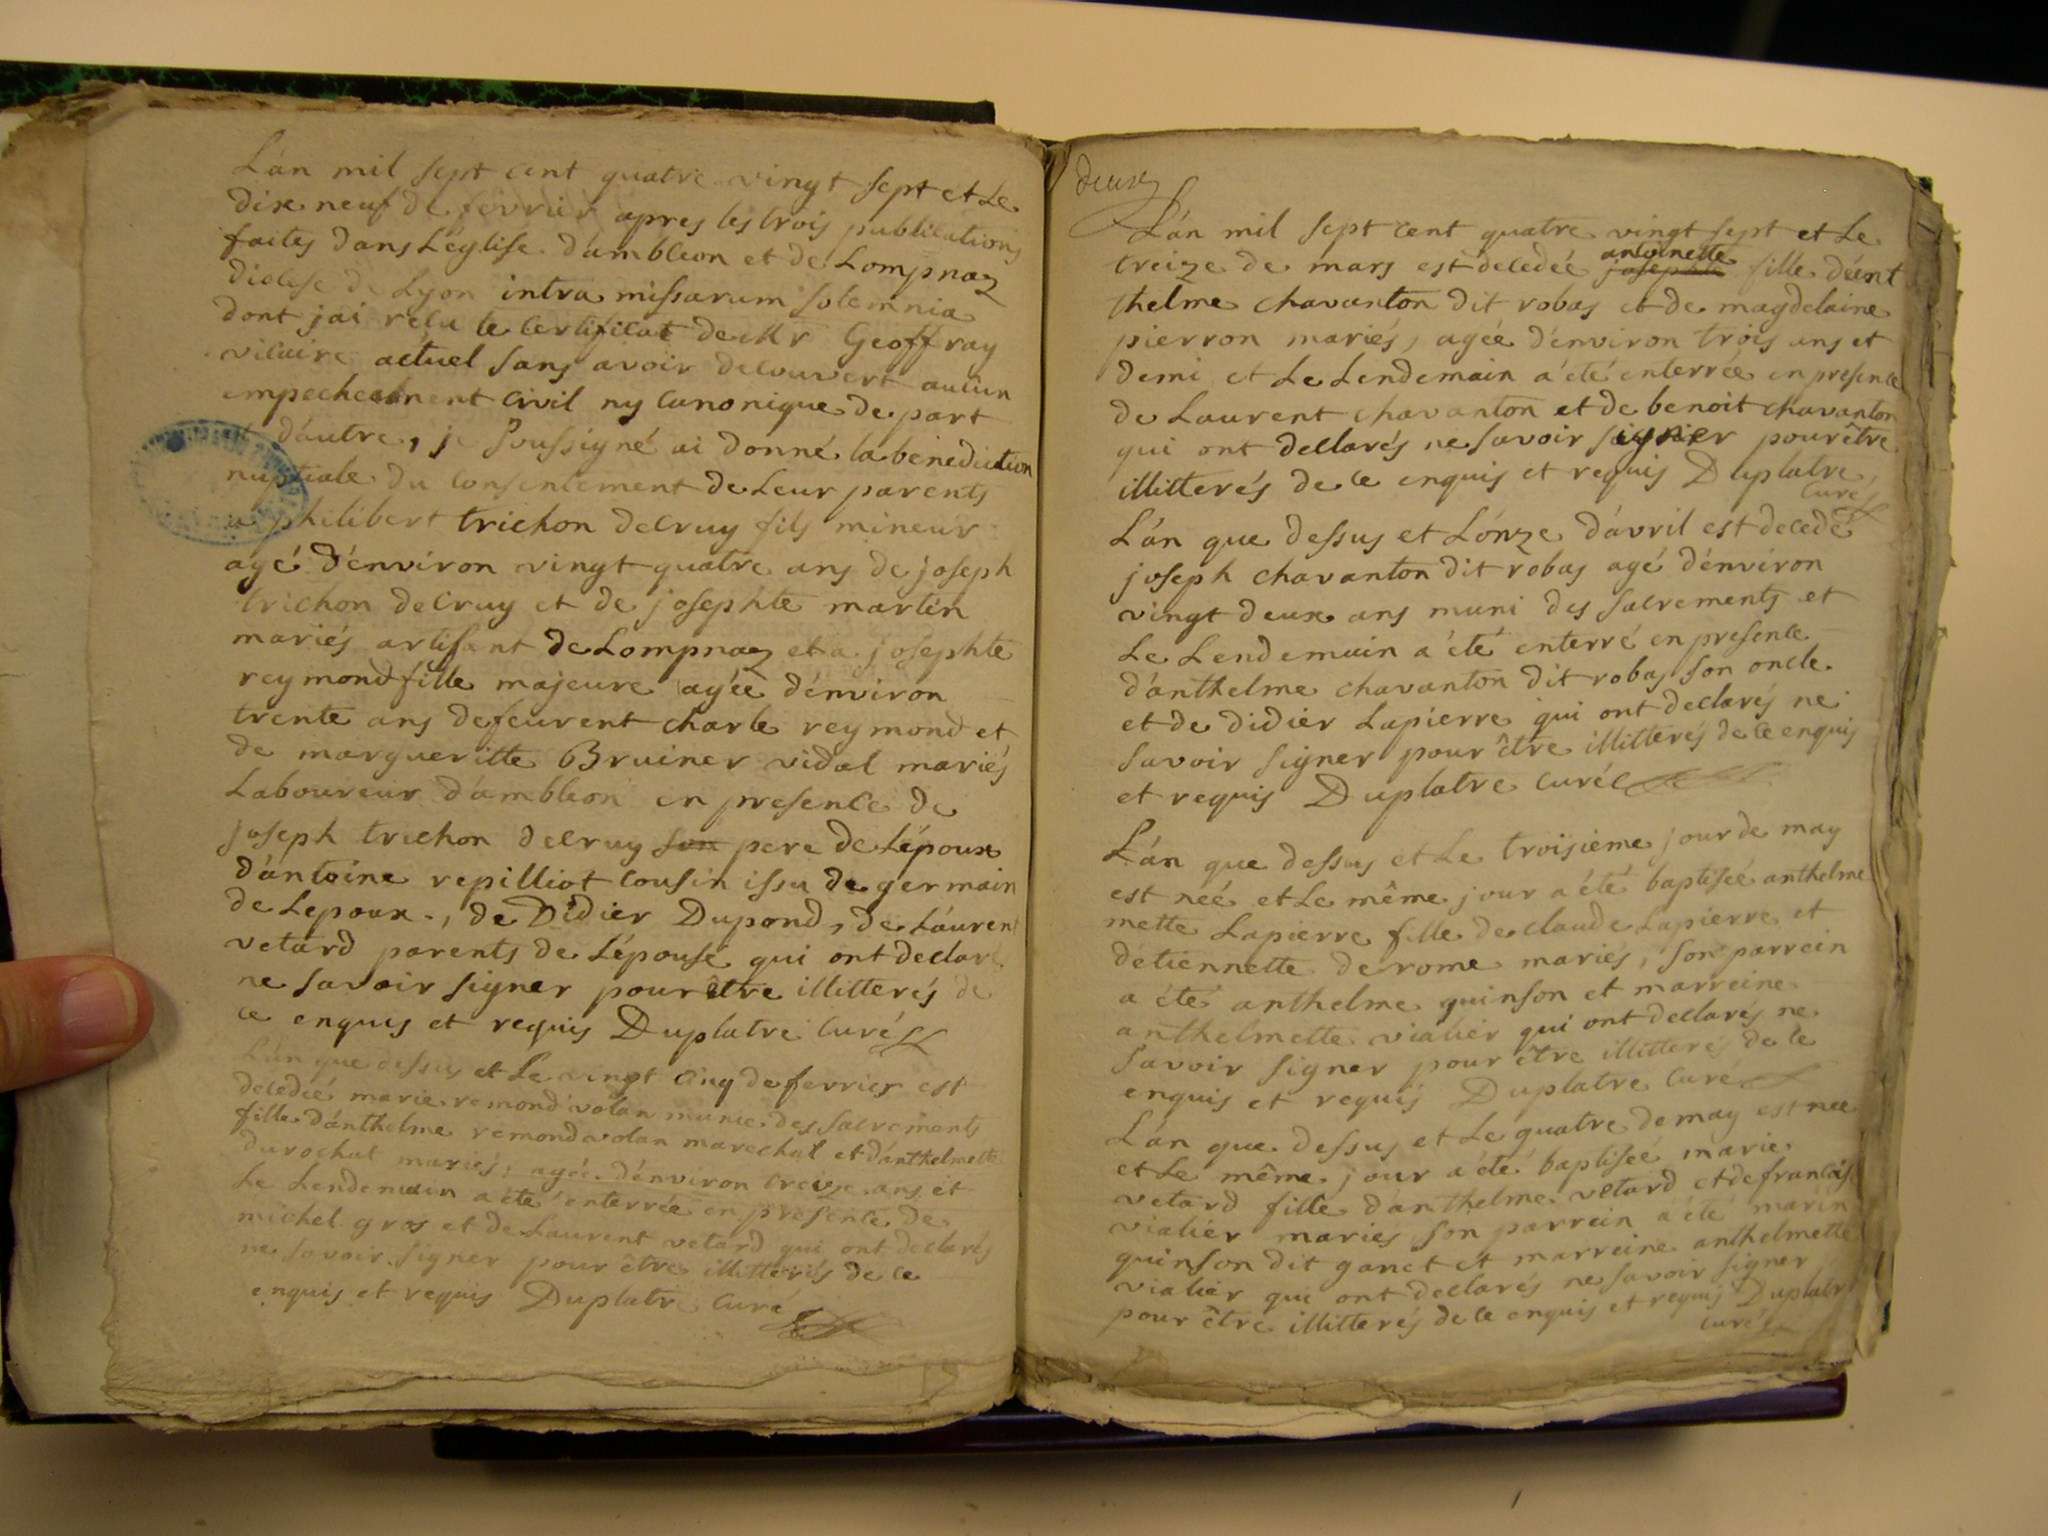 L'án mil sept cent quatre vingt sept et Le
dix neuf de fevrier apres les trois publications
faites dans L'église d'ambléon et de Lompnaz
diocése de Lyon intra missarum solemnia
dont j'ai réçu le certificat de Mr Geoffray
vicaire actuel sans avoir decouvert aucun
empechement civil ny canonique de part
et d'autre, je soussigné ai donné la benediction
nuptiale du consentement de Leur parents
a philibert trichon decruy fils mineur
agé d'énviron vingt quatre ans de joseph
trichon decruy et de josephte martin
mariés artisant de Lompnaz et a josephte
reymond fille majeure agée d'énviron
trente ans de feu rent charle reymond et
de margueritte Bruiner vidal mariés
Laboureur d'ambleon en presence de
joseph trichon decruy son pere de L'époux
d'ántoine repilliot cousin issu de germain
de Lepoux, de Didier Dupond, de Láurent
vetard parents de L'épouse qui ont declaré
ne savoir signer pour être illitterés de
ce enquis et requis Duplatre Curé
L'án que dessus et Le vingt cinq de ferrier est
decedeé marie remond volan munie des sacréments
fille d'ánthelme remond volan marechal et d'ánthelmette
durochat mariés, agée d'énviron treize ans et
Le Lendemain a été enterrée en presence de
michel gros et de Laurent vetard qui ont declarés
ne savoir signer pour être illitterés de ce
enquis et requis Duplatre Curé
deux
L'án mil sept cent quatre vingt sept et Le
treize de mars est decedeé antoinette josephte fille d'éant
thelme chavanton dit robas et de magdelaine
pierron mariés, agée d'énviron trois ans et
demi et Le Lendemain a été enterrée en presence
de Laurent chavanton et de benoit chavanton
qui ont declarés ne savoir signer pour être
illitterés de ce enquis et requis Duplatre
Curé
L'án que dessus et L'ónze d'avril est decedé
joseph chavanton dit robas agé d'énviron
vingt deux ans muni des sacrements et
Le Lendemain a été enterré en presence
d'ánthelme chavanton dit robas son oncle
et de didier Lapierre qui ont declarés ne
savoir signer pour être illitterés de ce enquis
et requis Duplatre Curé
L'án que dessus et Le troisiéme jour de may
est néé et Le même jour a été baptiseé anthelme
mette Lapierre fille de claude Lapierre et
d'etiennette derome mariés, son parrein
a été anthelme quinson et marreine
anthelmette vialier qui ont declarés ne
savoir signer pour être illitterés de ce
enquis et requis Duplatre Curé
L'án que dessus et Le quatre de may est neé
et Le même jour a été baptiseé marie
vetard fille d'anthelme vetard et de francois
vialiér mariés son parrein a été marin
quinson dit ganet et marreine anthelmette
vialier qui ont declarés ne savoir signer
pour être illitterés de ce enquis et requis Duplatre
Curé